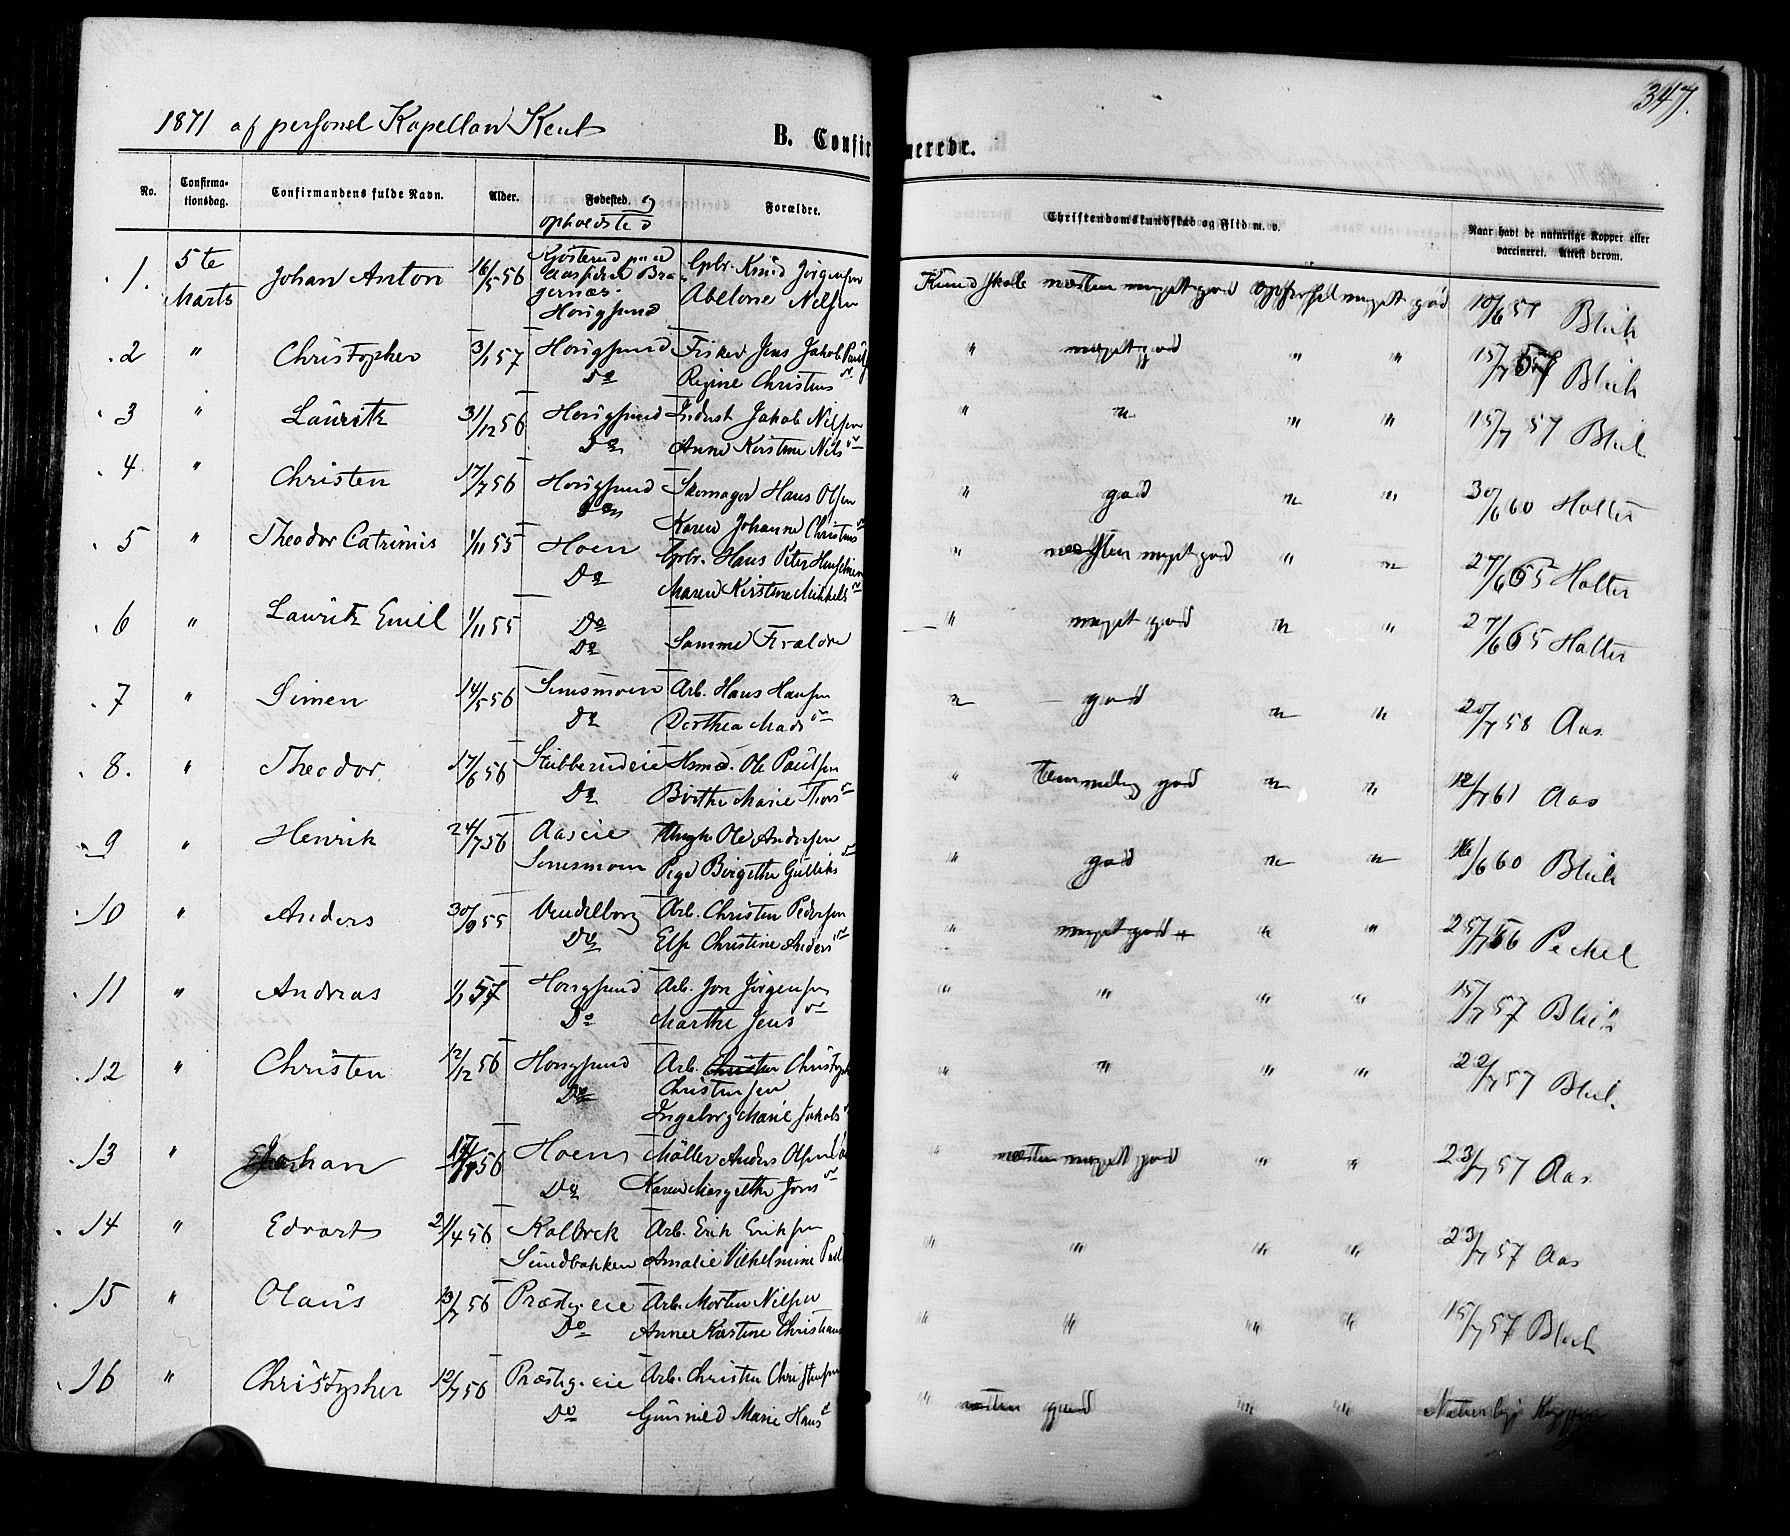 347.
1871 af personel Kapellan
B. Confirmerede.
No.
Confirma-
tionsdag.
Confirmandens fulde Navn.
Alder.
Fødested. og
opholdsted
Forældre.
Christendomskundskab og Flid m. v.
Naar havt de naturlige Kopper eller
vaccineret. Attest derom.
1. 5te Marts Johan Anton 16/5 56 Hougsund Gbr. Knud Jörgensen
Abelone Nilsen
Kundskab næsten meget god opførsel meget god 10/6 57 Blich
2 " Christopher 3/1 57 Hougsund Fisker Jens Jakob
Do Regine Christens
" meget god " " 15/7 57 Blich
3 " Lauritz 31/12 56 Hougsund Inderst Jakob Nilsen
Do Anne Kirstine Nils
" " " " 15/7 57 Blich
4 " Christen 17/7 56 Hougsund Skomager Hans Olsen
Do Karen Johanne Christens
" god " " 30/6 60 Holter
5 " Theodor Catrinus 1/11 55 Hoen Gbr. Hans Peter
Do Maren Kirstine Mikkels
" næsten meget god " " 27/6 65 Holter
6 " Lauritz Emil 1/11 55 Do
Do Samme Forældre
" meget god " " 27/6 65 Holter
7 " Simen 14/5 56 Arb. Hans Hansen
Do Dorthea Mads
" god " " 20/7 58 Aas
8. " Theodor 17/6 56 Stubberudeie Hsmd. Ole Paulsen
Do Birthe Marie Thors
" temmelig god " " 12/7 61 Aas
9 " Henrik 24/7 56 Aaseie Ungk. Ole Andersen
Pige Birgethe Gulliks
" god " " 16/6 60 Blich
10 " Anders 30/9 55 Vendelborg Arb. Christen Pedersen
Do Else Christine Anders
" meget god " " 25/7 56 Peckel
11 " Andreas 1/1 57 Hougsund Arb. Jon Jörgensen
Do Marthe Jens
" " " " 15/7 57 Blich
12 " Christen 12/12 56 Hougsund Arb. Christen
Do Christensen
Ingeborg Marie Jakobs
" " " " 22/7 57 Blich
13 " Johan 56 Hoen Möller Anders Olsen
Do Karen Margrethe Jons
" næsten meget god " " 23/7 57 Aas
14 " Edvart 21/4 56 Kolbrek Arb. Erik Eriksen
Sundbakken Amalie Vilhelmine
" " " " 23/7 57 Aas
15 " Olaus 13/7 56 Præstg.eie Arb. Morten Nilsen
Do Anne Kirstine Christians
" " " " 15/7 57 Blich
16 " Christopher 12/7 56 Præstg.eie Arb. Christen Christensen
Do Gunnild Marie Hans
" næsten god " " Naturlige Kopper